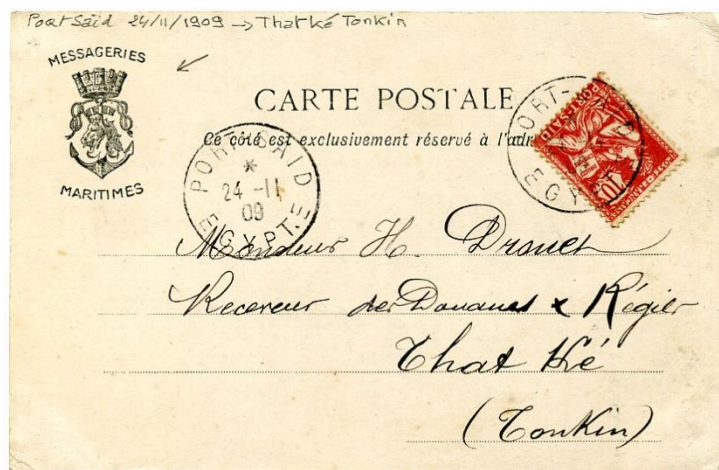 Port Saïd 24/11/1909 → That Ké Tonkin
MESSAGERIES
MARITIMES
CARTE POSTALE
Ce côté est exclusivement réservé à l'adr
PORT-SAID
*
24 -11
09
EGYPTE
PORT-SAID
EGYPTE
10
Monsieur H. Drouet
Receveur des Douanes & Régies
That Ké
(Tonkin)